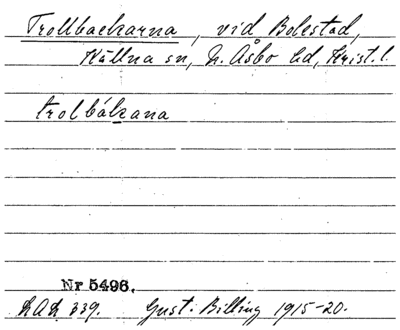 Trollbackarna, vid Bolestad,
Källna sn, N. Åsbo hd, Krist. l.
trolbákana
Nr 5496.
LAL 339. Gust. Billing 1915-20.